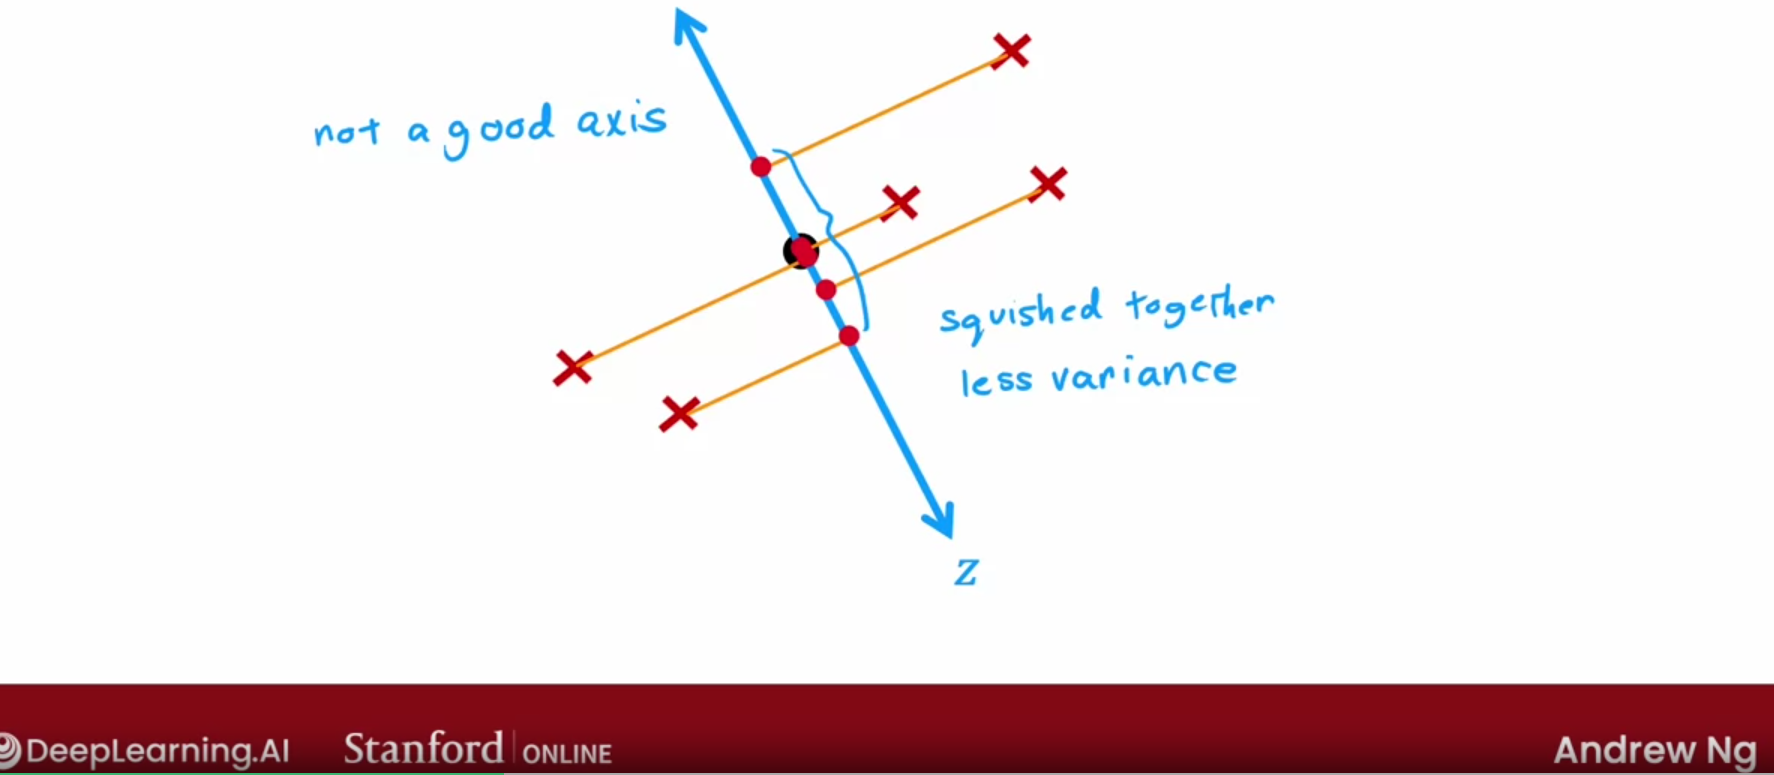 not a good axis
squished together
less variance
z
DeepLearning.AI Stanford ONLINE Andrew Ng